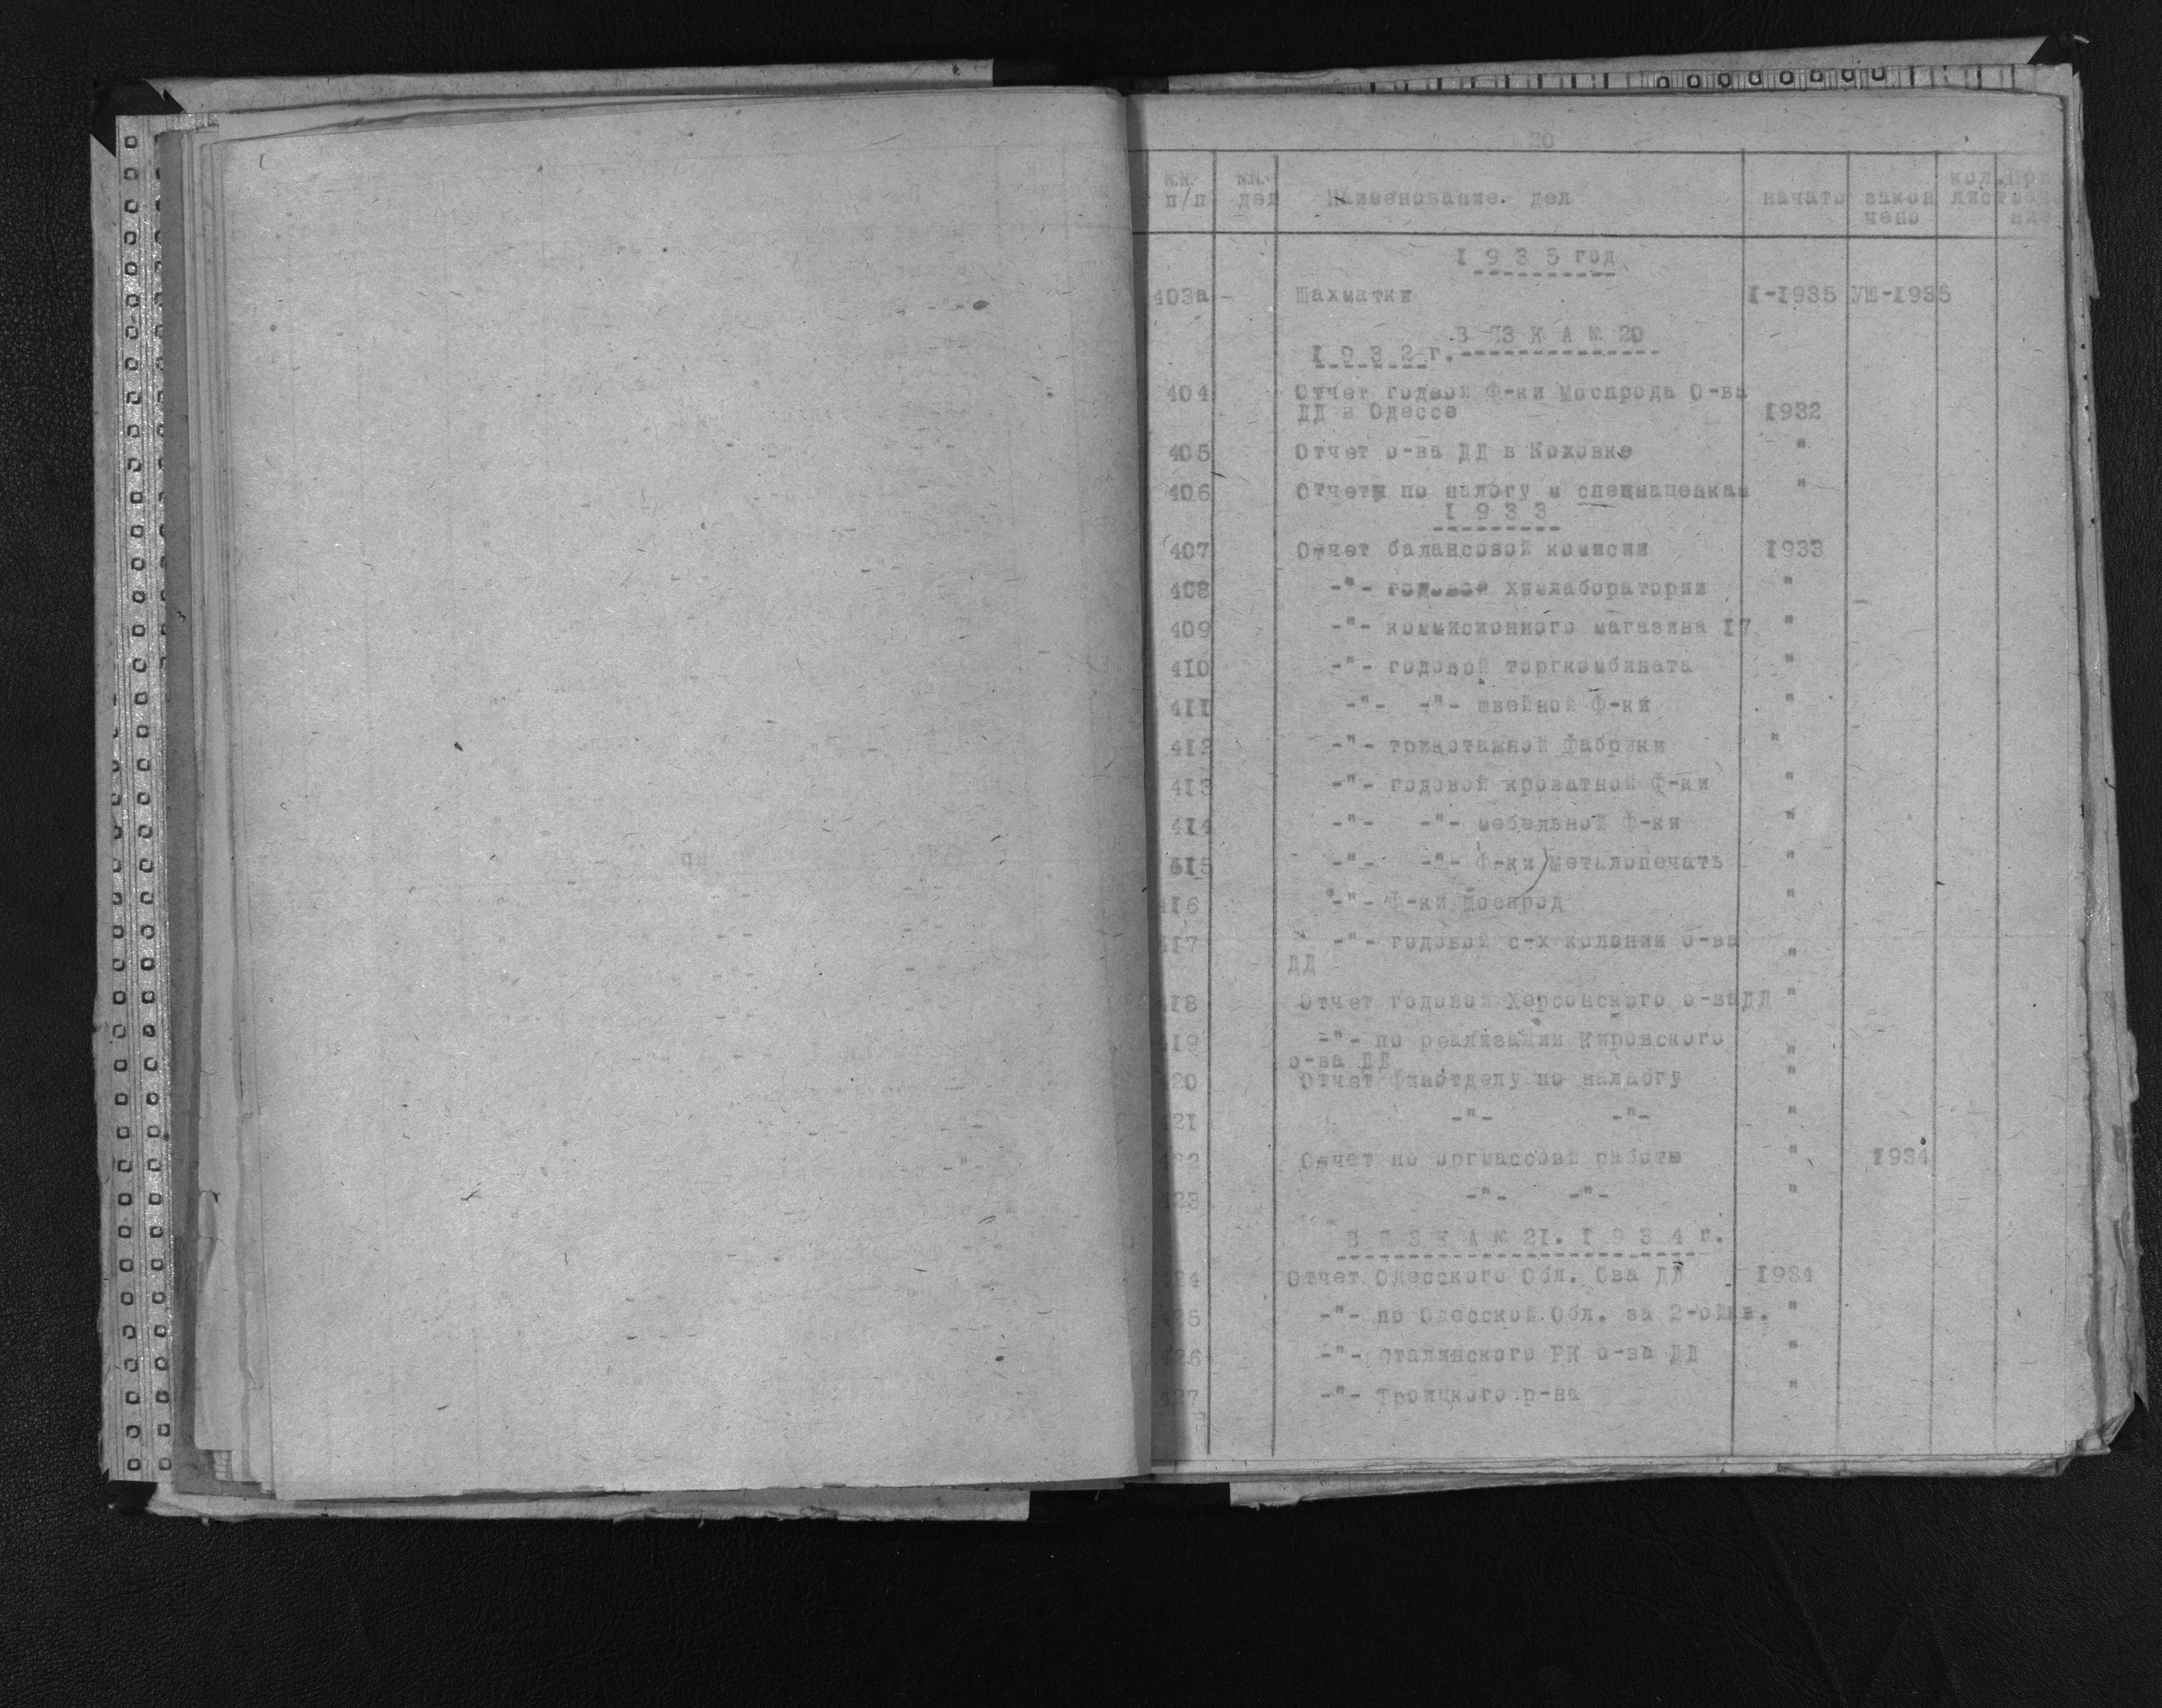 20
№№ №№ кол. При
п/п дел Наименование. дел начато закон лист меча
чено ние
1 9 3 5 год
403а - Шахматки I-1935 УШ-1935
В Я З К А № 20
1 9 3 2 г.
404 Отчет годвой Ф-ки Моспрода О-ва
ДД в Одессе 1932
405 Отчет о-ва ДД в Коховке "
406 Отчеты по налогу и спецнаценкам "
1 9 3 3
407 Отчет балансовой комисии 1933
408 -"- годовой химлаборатории "
409 -"- коммисионного магазина 17 "
410 -"- годовой торгкомбината "
411 -"- -"- швейной Ф-ки "
412 -"- трикотажной фабрики "
413 -"- годовой кроватной Ф-ки "
414 -"- -"- мебельной Ф-ки "
415 -"- -"- Ф-ки Металопечать "
416 -"- Ф-ки Моспрод "
417 -"- годовой с-х колонии о-ва
ДД "
418 Отчет годовой Херсонского о-ва ДД "
419 -"- по реализации Кировского
о-ва ДД "
420 Отчет Финотделу по налаогу "
421 -"- -"- "
422 Отчет по оргмассовй работе " 1934
423 -"- -"- "
В Я З К А № 21. 1 9 3 4 г.
424 Отчет Одесского Обл. Ова ДД 1934
425 -"- по Одесской Обл. за 2-ой кв. "
426 -"- Сталинского РК о-ва ДД "
427 -"- Троицкого р-на "